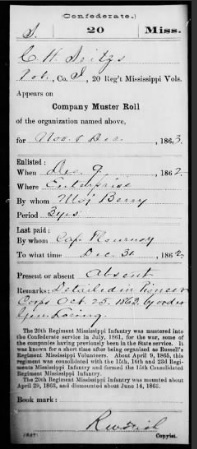 (Confederate.)
S. 20 Miss.
C. H.
Pvt., Co. I, 20 Reg't Mississippi Vols.
Appears on
Company Muster Roll
of the organization named above,
for Nov. & Dec., 1863.
Enlisted:
When Dec 9, 1862.
Where Enterprise
By whom Maj Berry
Period 3 yrs
Last paid:
By whom Cap
To what time Dec 31, 1862.
Present or absent Absent
Remarks: Detailed in Pioneer
Corps Oct. 25. 1863, by order
Gen Loring.
The 20th Regiment Mississippi Infantry was mustered into
the Confederate service in July, 1861, for the war, some of
the companies having previously been in the State service. It
was known for a short time after being organized as Russell's
Regiment Mississippi Volunteers. About April 9, 1865, this
regiment was consolidated with the 15th and 23d Regi-
ments Mississippi Infantry and formed the 15th Consolidated
Regiment Mississippi Infantry.
The 20th Regiment Mississippi Infantry was mounted about
April 29, 1863, and dismounted about June 14, 1863.
Book mark:
Copyist.